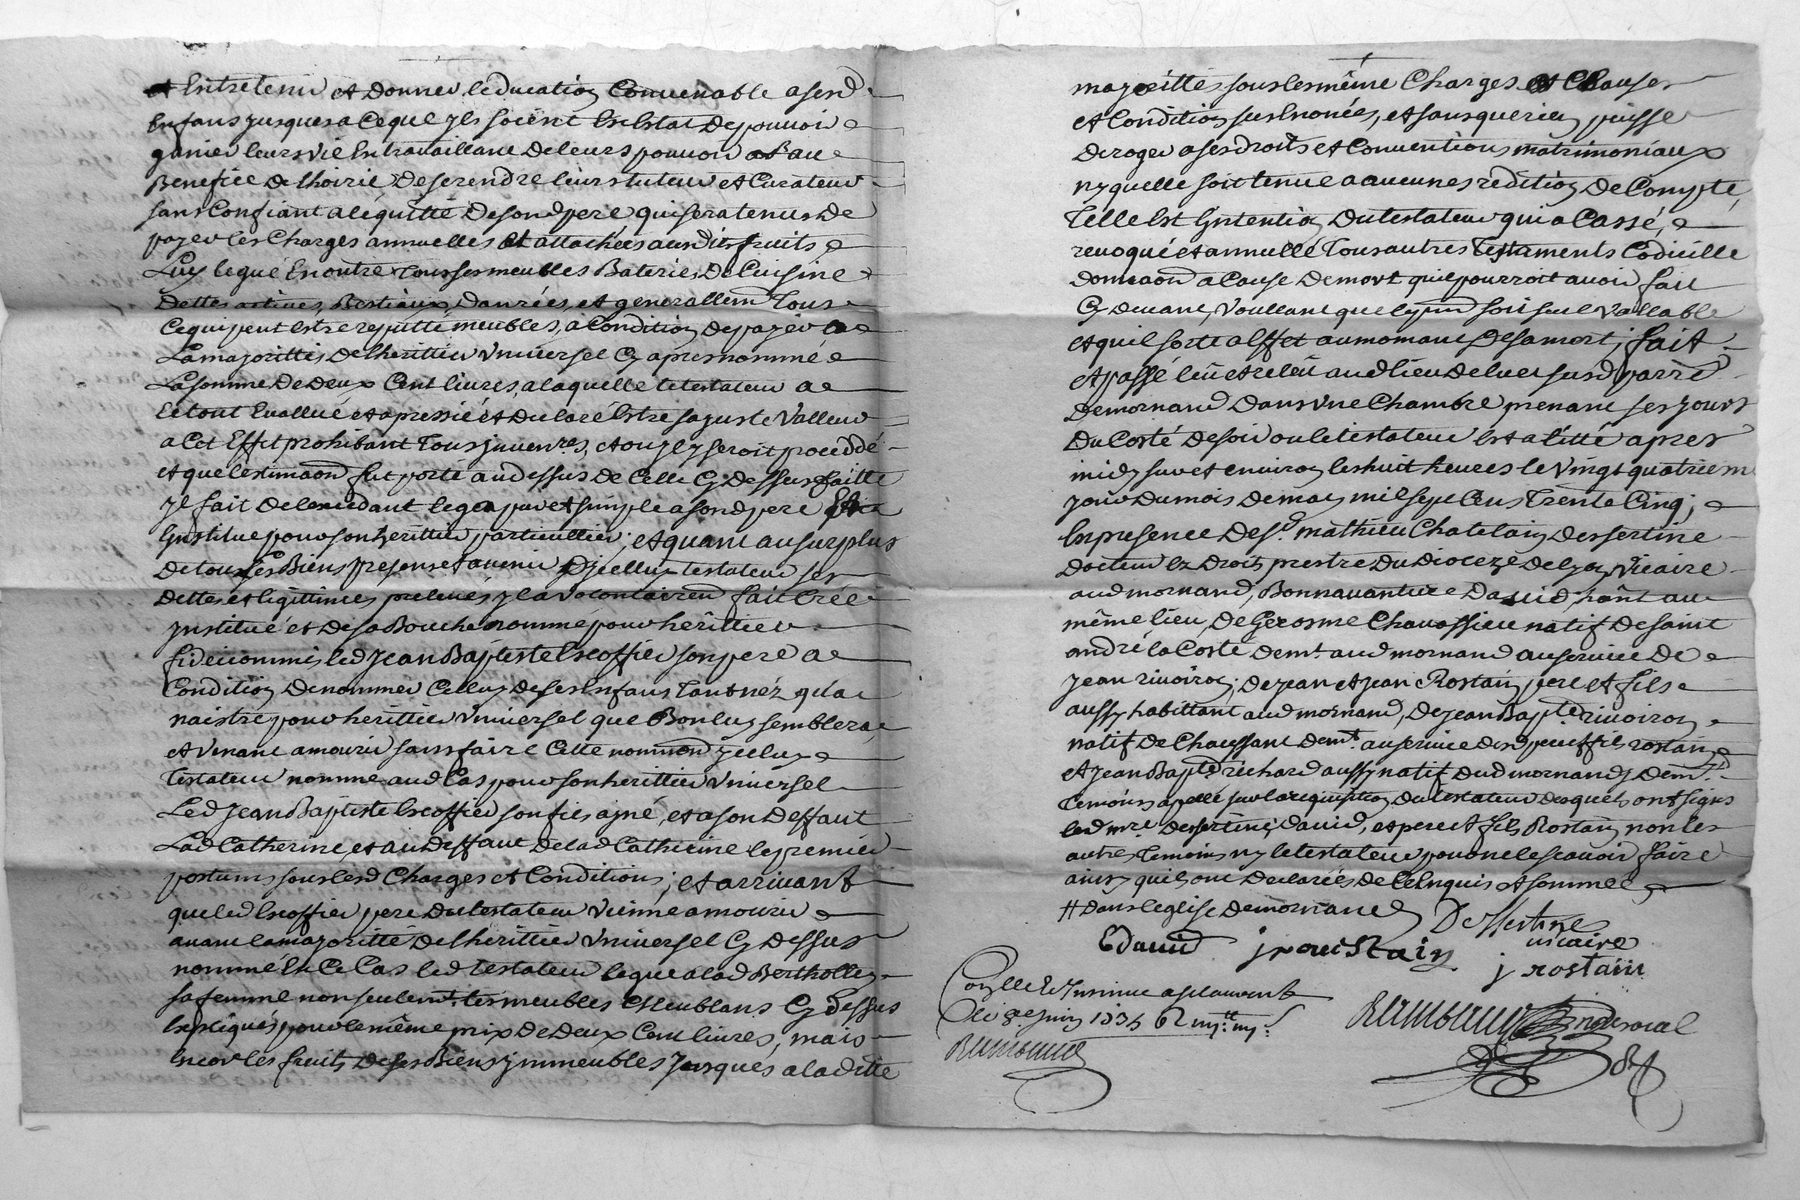 et Entretenir et Donner leducation Convenable a sesd
Enfans jusques a Ce que yls soient En Estat De pouvoir
ganier leurs vie En travaillant De leurs pouvoir au
Benefice De lhoirie, De se rendre leurs tuteur et Curateur
sans Confiant a lequitté De sond pere qui sera tenus De
payer les Charges annuelles et attachées ausdits fruits
Luy legue En outre tous ses meubles Baterie De Cuisine
Dettes actives, Bestiaux, Danrées, et generallemt Tous
Ce qui peut Estre reputté meubles, a Condition De payer a
La majorittés De lherittier universel Cy apres nommé
La somme De Deux Cent livres, a laquelle le testateur a
Le tout Evallué et apressié et Declaré Estre sa juste Valleur
a Cet Effet prohibant Tous Inven.res, et ou yl y seroit procéddé
et que lestimaon fut porté au dessus De Celle Cy Dessus faitte
yl fait De lexcedant legat pur et simple a sond pere
Institue pour son heritier particullier; et quant au surplus
De tous ses Biens presens et avenir Dicelluy testateur ses
Dettes et legittimes prelevés yl a volontairem fait Créé
Institué et De sa Bouche nommé pour hérittier
fideicommis led Jean Baptiste Escoffier son pere a
Condition De nommer Celluy De ses Enfans Tant néz qu'a
naistre pour herittier Universel que Bon luy semblera,
et venant a mourir sans faire Cette nominon ycelluy
Testateur nomme aud Cas pour son herittier Universel
Led Jean Baptiste Escoffier son fils ayné, et a son Deffaut
Lad Catherine, et au Deffaut De lad Catherine le premier
postum sous lesd Charges et Conditions; et arrivant
que led Escoffier pere Du testateur vienne a mourir
avant la majoritté De lherittier universel Cy Dessus
nommé En Ce Cas led testateur legue a lad Bertholley
sa femme non seulemt. les meubles et Meublans Cy Dessus
Expliqués pour le même prix De Deux Cent livres, mais
Encor les fruits De ses Biens ymmeubles Jusques a la ditte
majorittés sous les même Charges et Clauses
et Condition sus Enoncés, et sans que rien puisse
Deroger a ses droits et Conventions matrimoniaux
ny quelle soit tenue a aucunes reddition De Compte,
Telle Est Lintention Du testateur qui a Cassé,
revoqué et annullé Tous autres Testaments Codicille
Donnaon a Cause De mort quil pourroit avoir fait
Cy devant, Voullant que le pnt soit seul Vallable
et quil sorte a Effet au momant De sa mort; fait
et passé leu et releu aud lieu De luer susd parre
De mornand Dans Une Chambre prenant ses jours
Du Costé De soir ou le testateur Est alitté apres
midy sur et environ les huit heures le vingt quatriem
jour Du mois De may mil sept Cens Trente Cinq;
En presence De sr. mathieu Chatelain Dessertine
Docteur Ez Droits prestre Du Dioceze De Lyon, Vicaire
aud mornand, Bonnavanture David hant au
même lieu, De Gerosme Chavassieu natif De saint
andré la Coste Demt aud mornand au service De
Jean rivoiron; De jean et Jean Rostain pere et fils
aussy habittant aud mornand, De jean Bapte rivoiron
natif De Chaussant Demt. au service Desd pere et fils rostain
et Jean Bapte richard aussy natif Dud mornand y Demt.
Temoins appellé sur la requisition Du testateur Desquels ont signé
led mre Dessertine, David, et pere et fils Rostain non les
autres Temoins ny le testateur pour ne le scavoir faire
ainsy quils ont Declarés De Ce Enquis et sommé
# Dans leglise De mornand
Dessertine
vicaire
Edavid j roustain j rostain
Conllé et Insinué a st laurent
le 8e juin 1735